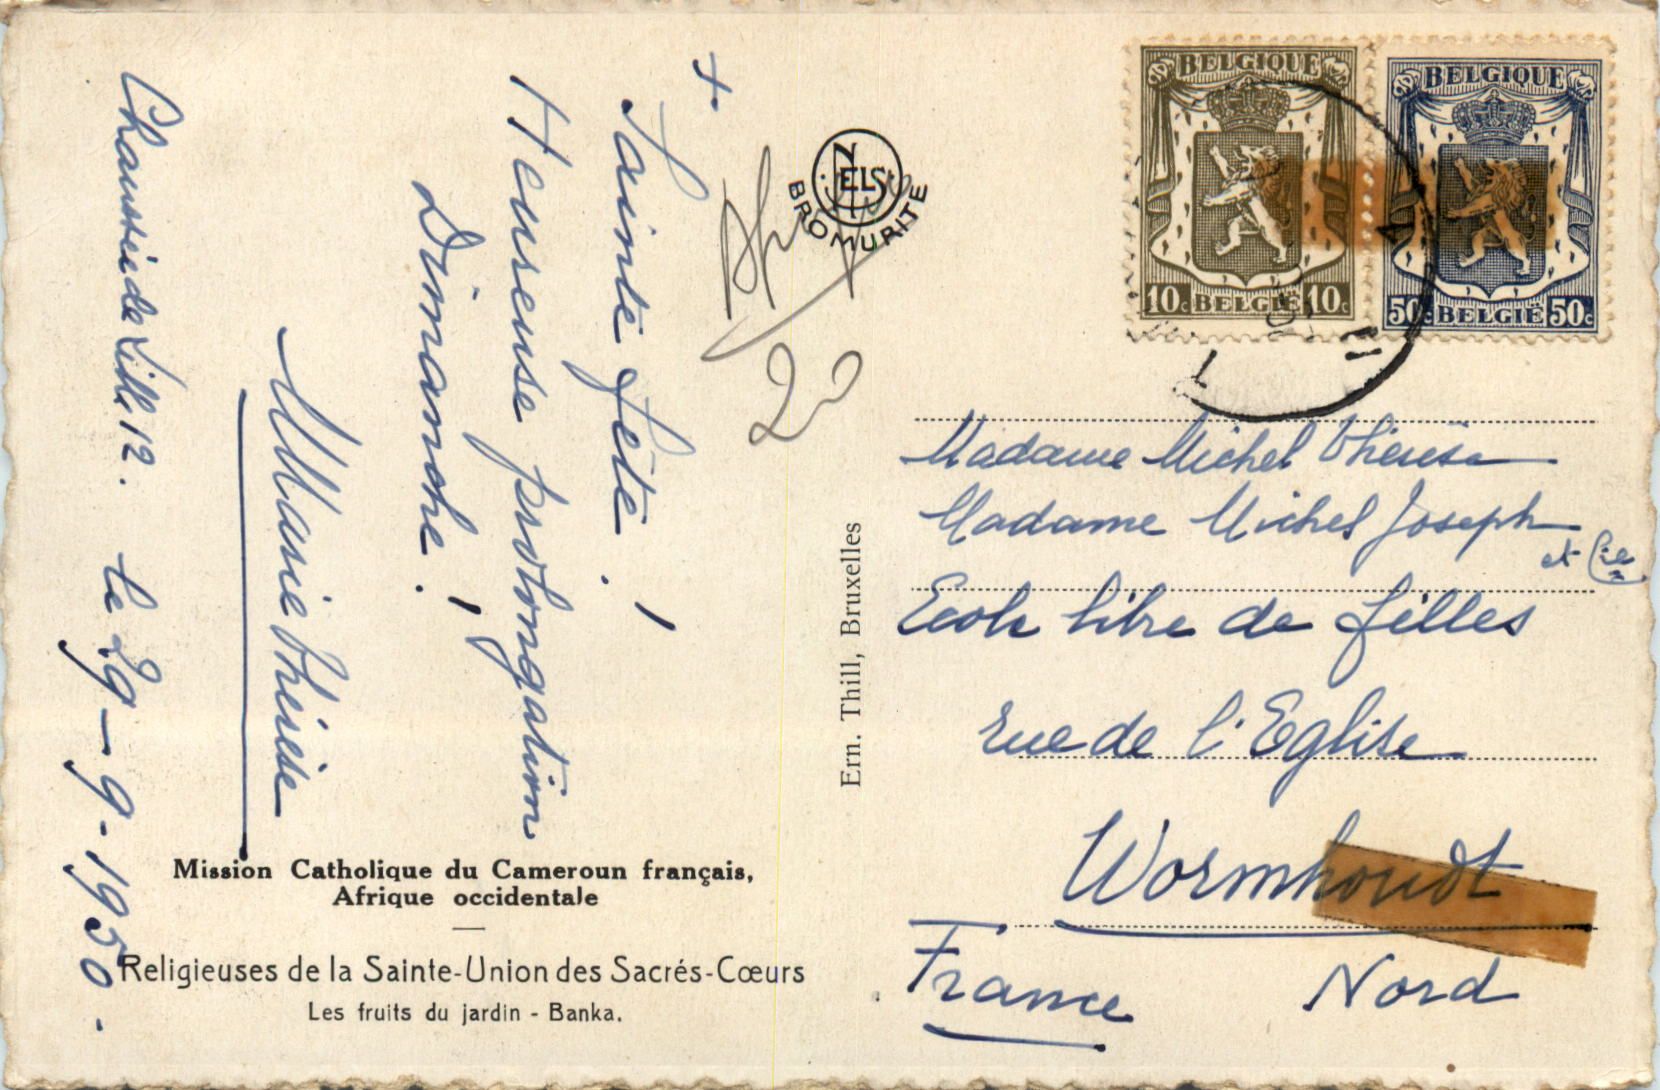 +
Sainte fête !
Heureuse prolongation
Dimanche !
Marie Thérèse
Chaussée de Lille 12. le 29-9-1950.
NELS
BROMURITE
20
Mission Catholique du Cameroun français,
Afrique occidentale
Religieuses de la Sainte-Union des Sacrés-Cœurs
Les fruits du jardin - Banka.
Ern. Thill, Bruxelles
BELGIQUE
10c BELGIË 10c
BELGIQUE
50c BELGIË 50c
Madame Michel Thérèse
Madame Michel Joseph
et Cie
Ecole libre de filles
rue de l'Eglise
Wormhoudt
France Nord